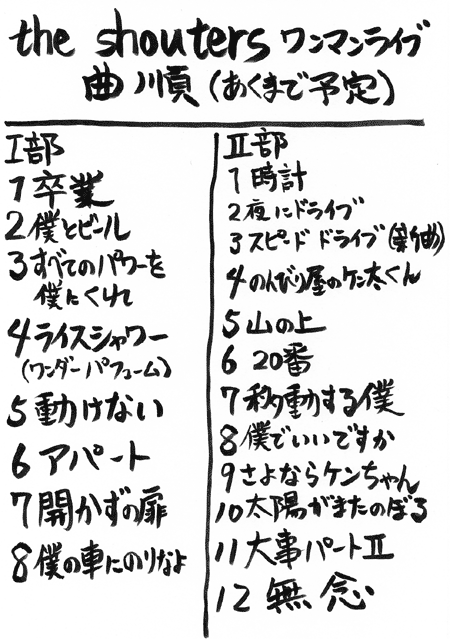 the shouters ワンマンライブ
曲順(あくまで予定)
I部
1 卒業
2 僕とビール
3 すべてのパワーを
僕にくれて
4 ライスシャワー
(ワンダーパフューム)
5 動けない
6 アパート
7 開かずの扉
8 僕の車にのりなよ
II部
1 時計
2 夜にドライブ
3 スピードドライブ(新曲)
4 のんびり屋のケン太くん
5 山の上
6 20番
7 移動する僕
8 僕でいいですか
9 さよならケンちゃん
10 太陽がまたのぼる
11 大事パートII
12 無念